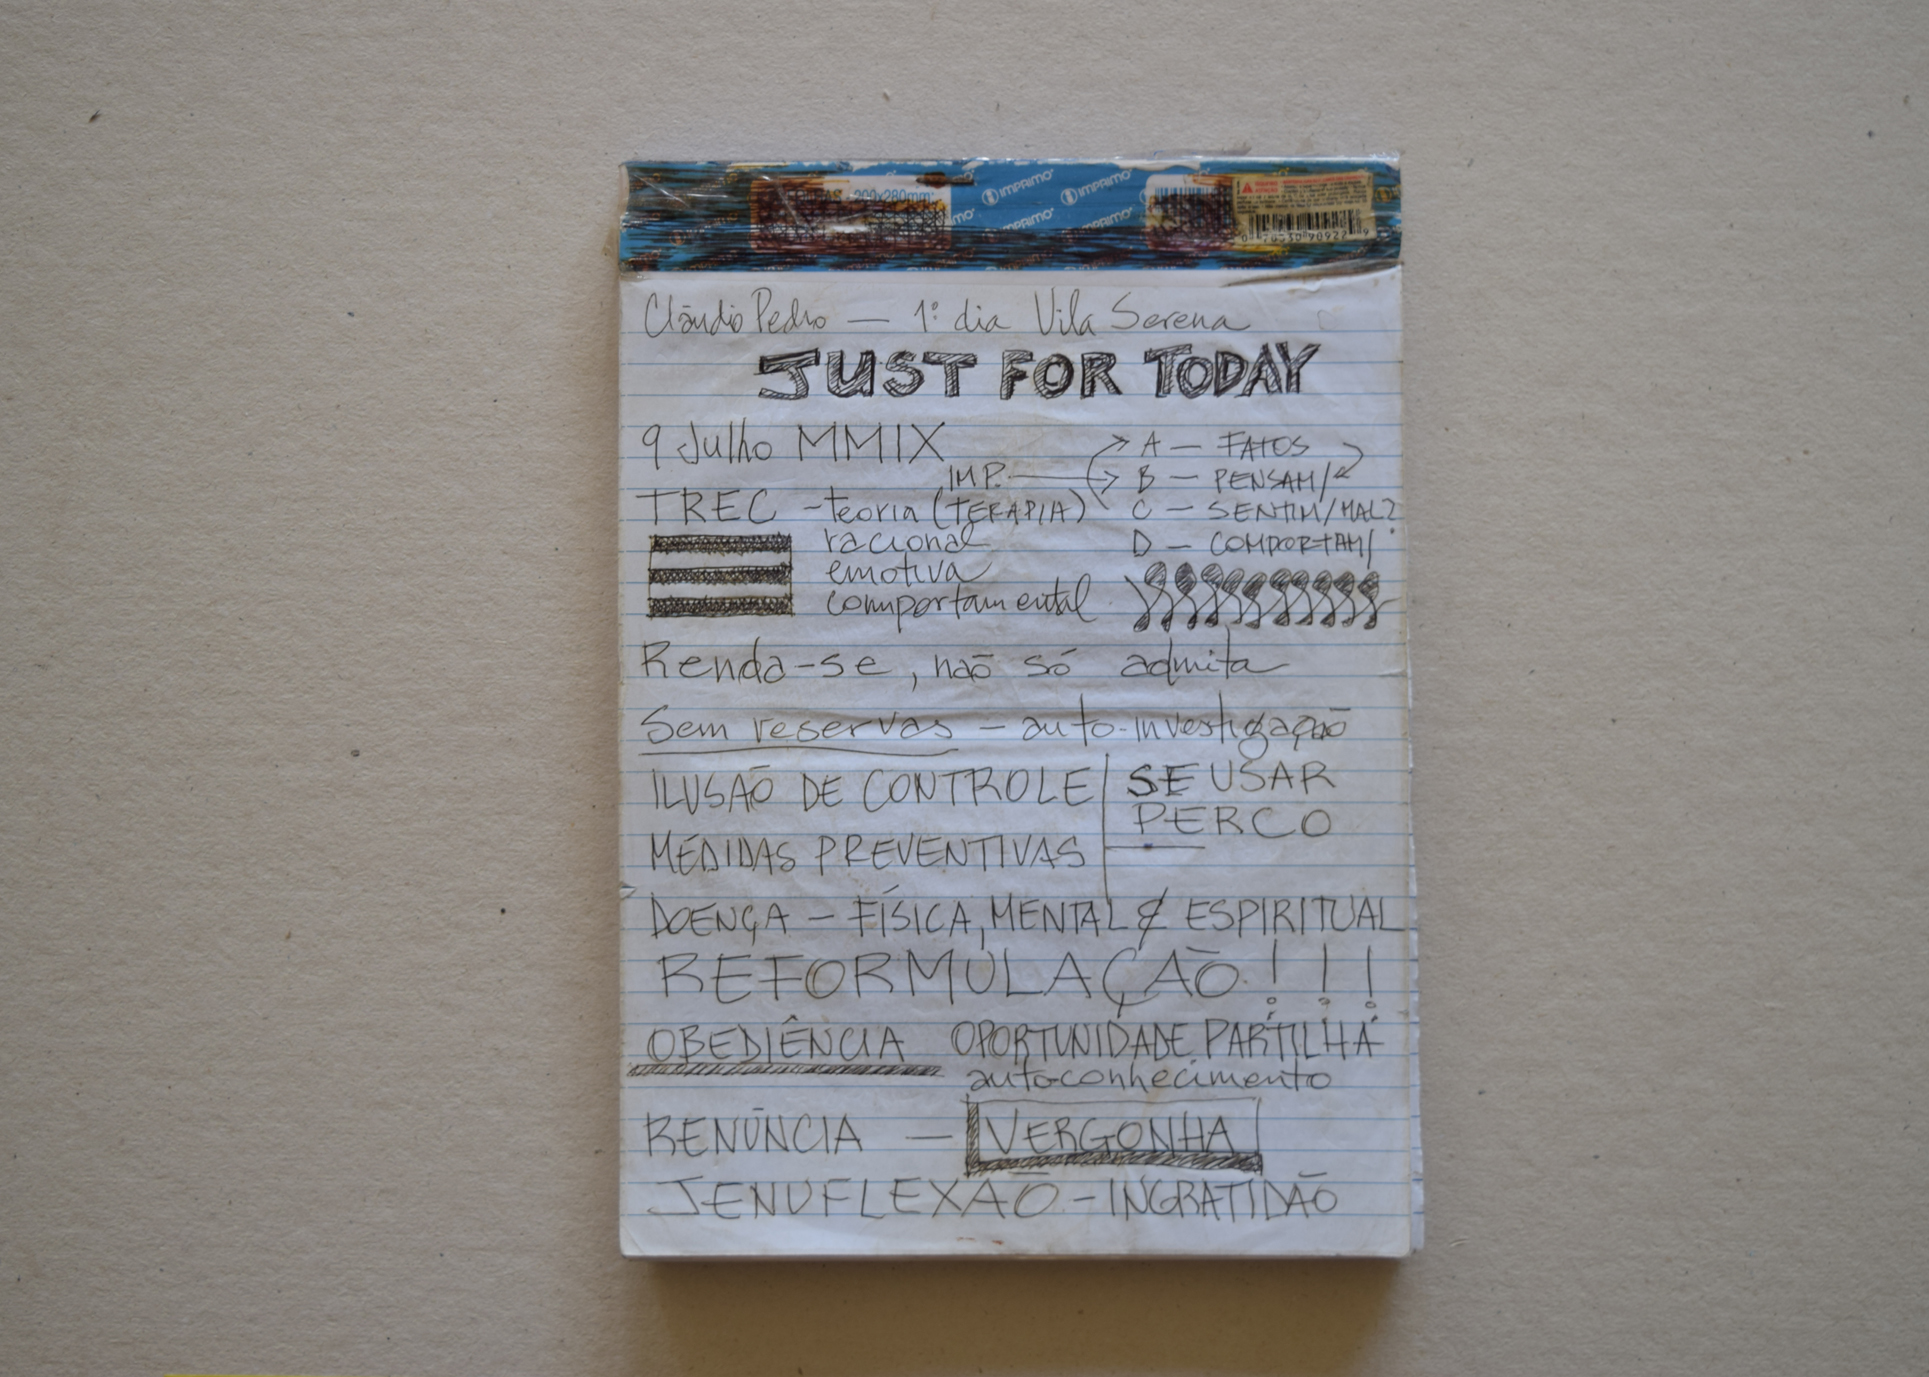 200x280mm
IMPRIMO IMPRIMO
IMPRIMO IMPRIMO
Cláudio Pedro — 1º dia Vila Serena
JUST FOR TODAY
9 Julho MMIX
IMP.
A — FATOS
B — PENSAM/
C — SENTIM/MAL?
D — COMPORTAM/
TREC - teoria (TERAPIA)
racional
emotiva
comportamental
Renda-se, não só admita
Sem reservas - auto-investigação
ILUSÃO DE CONTROLE
MEDIDAS PREVENTIVAS
SE USAR
PERCO
DOENÇA - FÍSICA, MENTAL E ESPIRITUAL
REFORMULAÇÃO!!!
OBEDIÊNCIA OPORTUNIDADE PARTILHA
autoconhecimento
RENÚNCIA — VERGONHA
JENUFLEXÃO - INGRATIDÃO